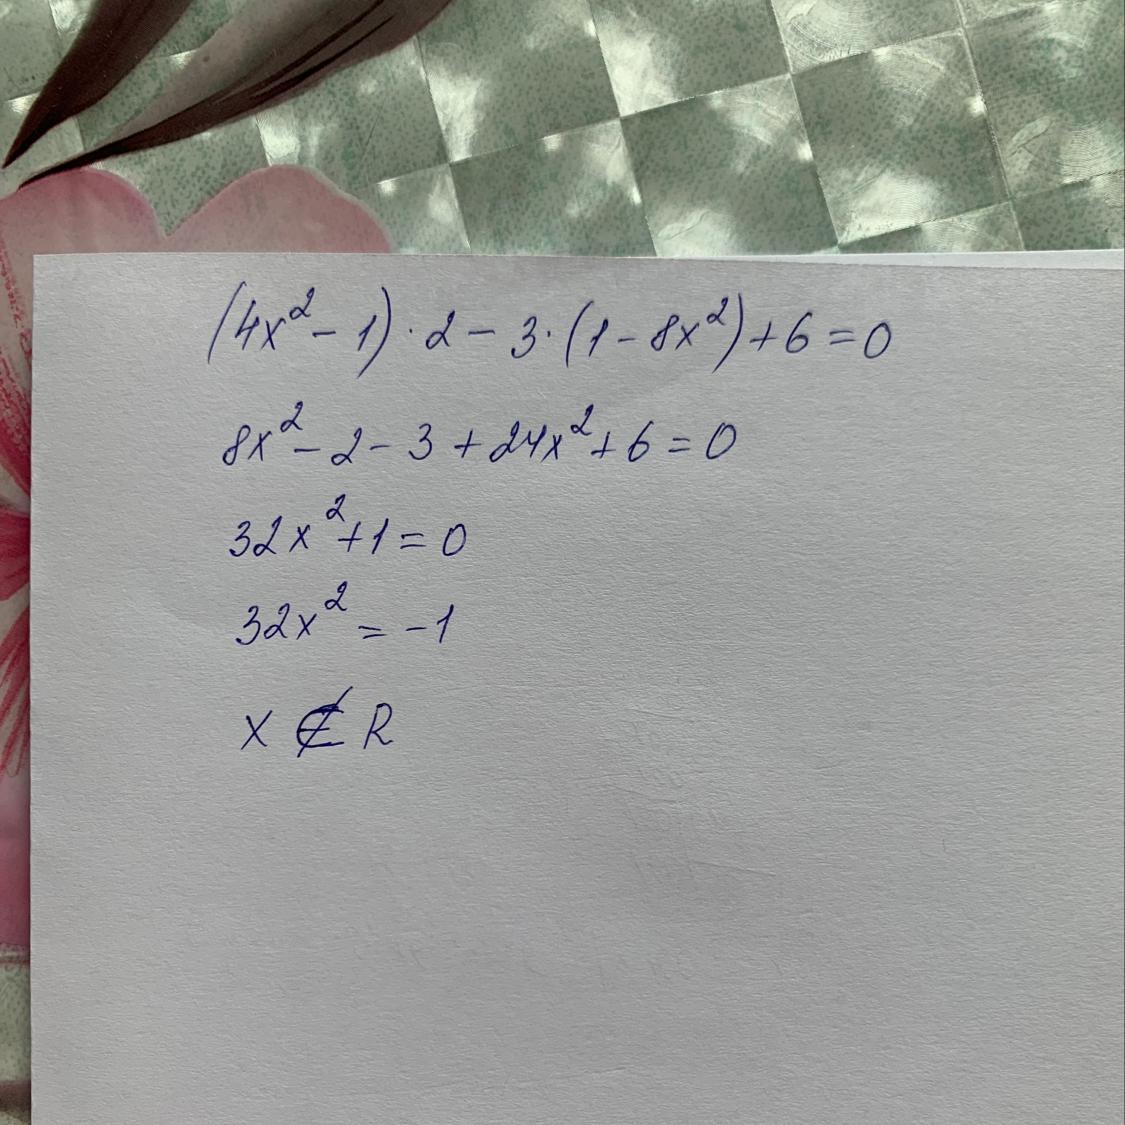 (4x² - 1) · 2 - 3 · (1 - 8x²) + 6 = 0
8x² - 2 - 3 + 24x² + 6 = 0
32x² + 1 = 0
32x² = -1
x ∉ R